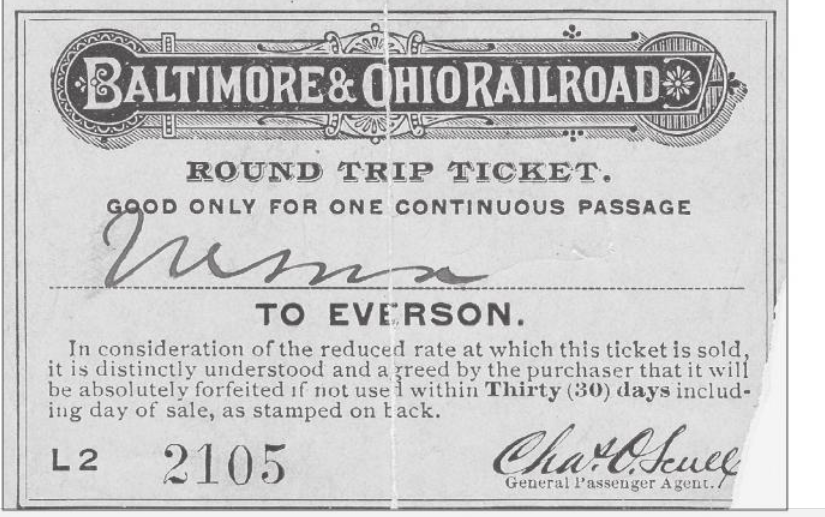 BALTIMORE & OHIO RAILROAD
ROUND TRIP TICKET.
GOOD ONLY FOR ONE CONTINUOUS PASSAGE
TO EVERSON.
In consideration of the reduced rate at which this ticket is sold,
it is distinctly understood and agreed by the purchaser that it will
be absolutely forfeited if not used within Thirty (30) days includ-
ing day of sale, as stamped on back.
L2 2105
Chas. O. Scull
General Passenger Agent.